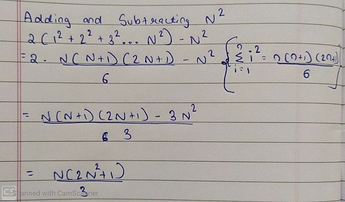 Adding and Subtracting N²
2(1² + 2² + 3² ... N²) - N²
= 2. N(N+1)(2N+1)/6 - N² { n Σ i=1 i² = n(n+1)(2n+1)/6
= N(N+1)(2N+1) - 3N² / 6 3
= N(2N²+1)/3
CS Scanned with CamScanner